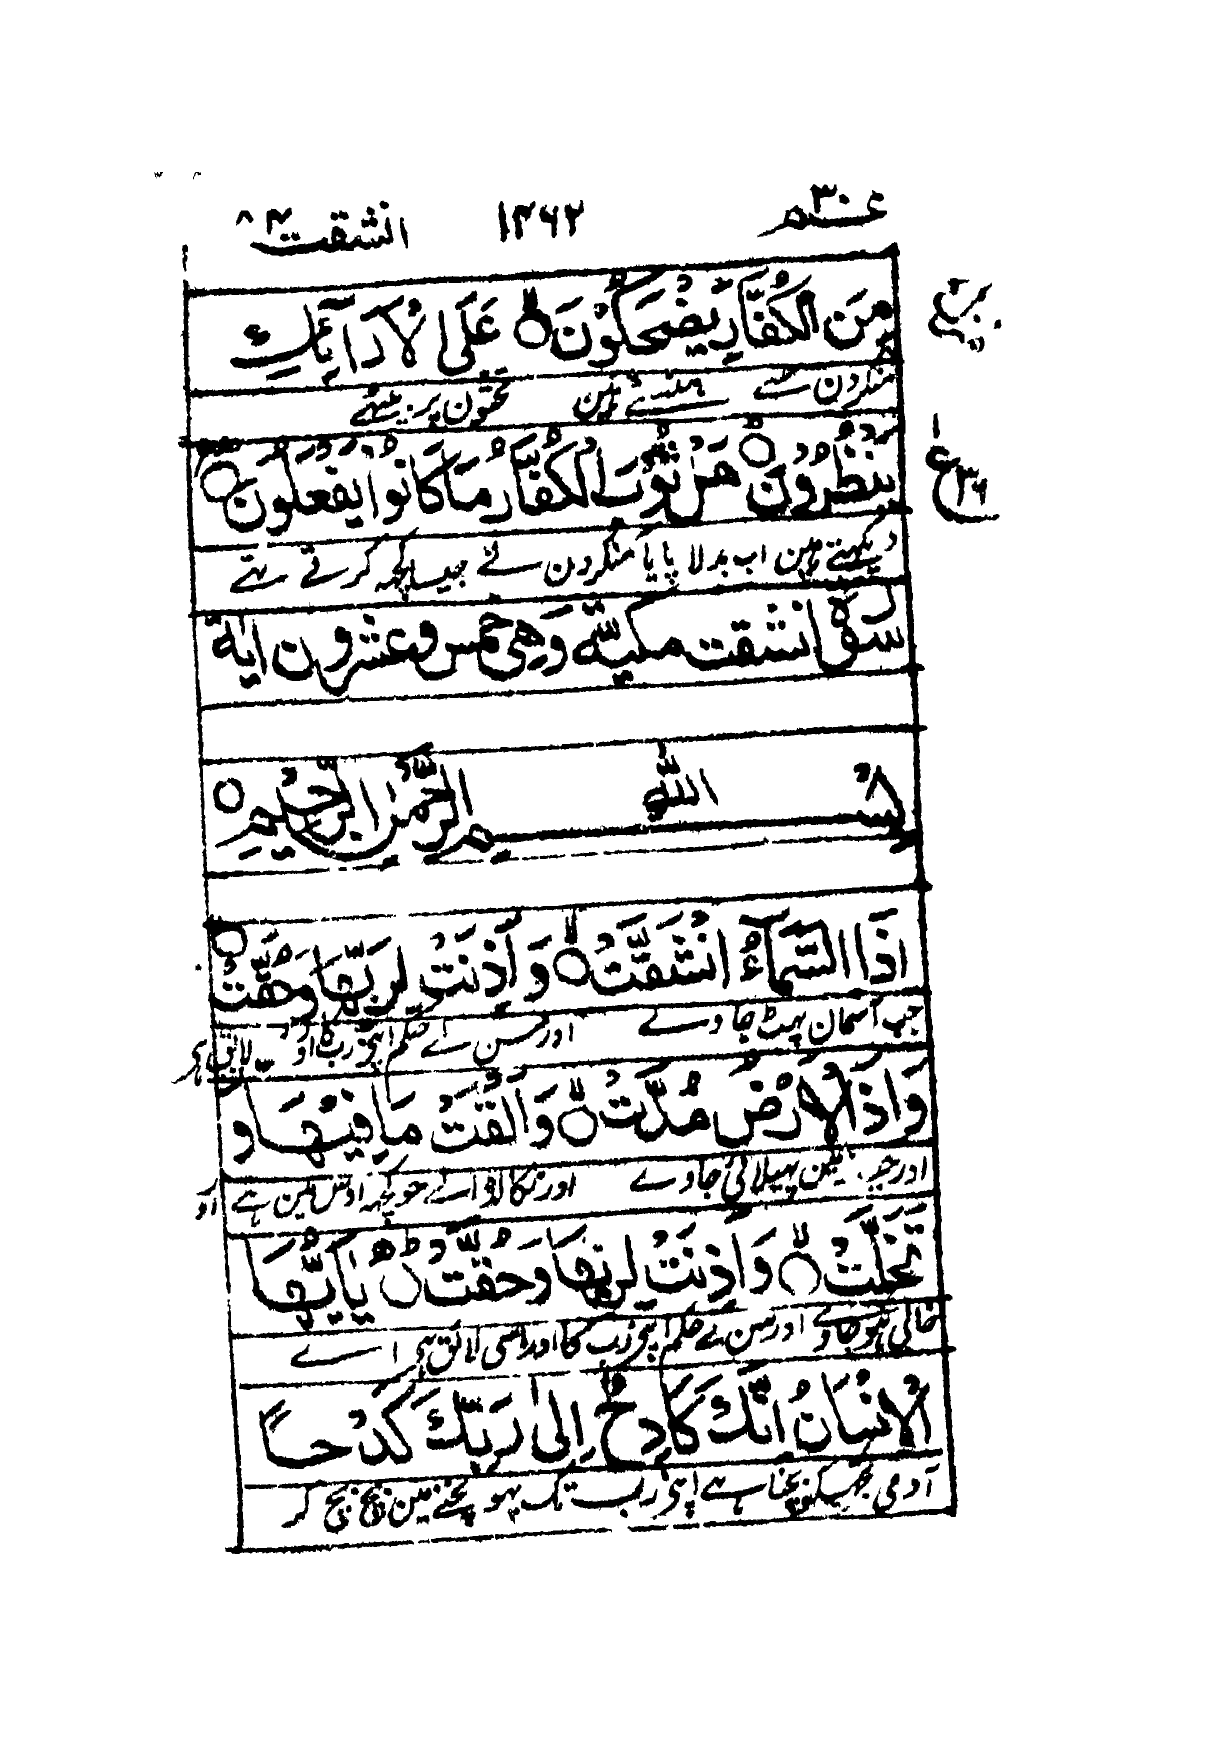 عم ۳۰ ۱۳۶۲ انشقت ۸۴
مِنَ الْكُفَّارِ يَضْحَكُوْنَ عَلَى الْاَرَآئِكِ
منکرون سے ہنستے ہین تختون پر بیٹھے
يَنْظُرُوْنَ هَلْ ثُوِّبَ الْكُفَّارُ مَا كَانُوْا يَفْعَلُوْنَ
دیکھتے ہین اب بدلا پایا منکرون نے جیسا کچھہ کرتے تہے
انشقت مكية وهي خمس وعشرون اية
بسم الله الرحمن الرحيم
اِذَا السَّمَآءُ انْشَقَّتْ وَاَذِنَتْ لِرَبِّهَا وَحُقَّتْ
جب آسمان پہٹ جاوے اور سن لے حکم اپنی رب کا اور لائق ہی
وَاِذَا الْاَرْضُ مُدَّتْ وَاَلْقَتْ مَا فِيْهَا وَ
اور جب زمین پہیلائی جاوے اور نکال ڈالے جو کچہہ اوسمین ہے اور
تَخَلَّتْ وَاَذِنَتْ لِرَبِّهَا وَحُقَّتْ يٰاَيُّهَا
خالی ہو جاوے اور سن لے حکم اپنی رب کا اور اسی لائق ہی اے
الْاِنْسَانُ اِنَّكَ كَادِحٌ اِلٰى رَبِّكَ كَدْحًا
آدمی تجھکو پچنا ہے اپنی رب تک پہونچنے مین پچ پچ کر
ع ۳۶